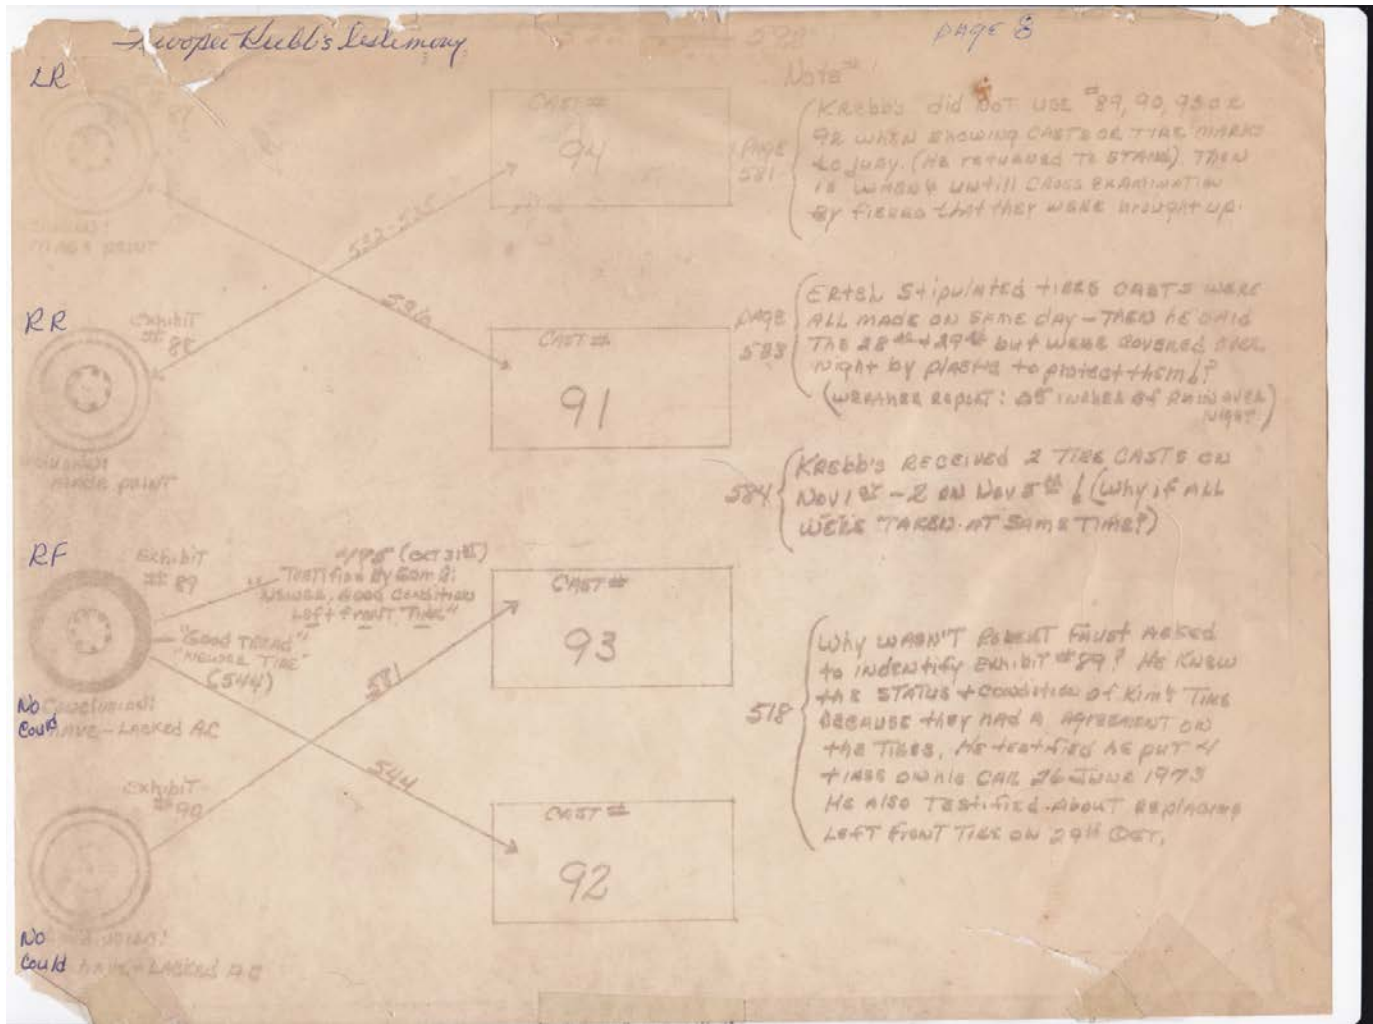 Trooper Krebb's Testimony
PAGE 8
LR
87
MADE PRINT
CAST #
94
532-535
539/0
RR
Exhibit
# 88
MADE PRINT
CAST #
91
RF
Exhibit
# 89
(OCT 31st)
Testified By Som
Newer, Good Condition
Left Front Tire"
"Good Tread"
"Newer Tire"
(544)
No Conclusion!
Could HAVE - LACKED AC
CAST #
93
581
544
Exhibit
# 90
CAST #
92
No
Could HAVE - LACKED AC
Note
PAGE
581
Krebb's did NOT USE #89, 90, 93 OR
92 when showing CASTS OR TIRE MARKS
to jury. (He returned to STAND) Then
it wasn't untill CROSS EXAMINATION
By Fierro that they were brought up.
PAGE
583
Ertel Stipulated tires CASTS were
ALL MADE ON SAME day - THEN he said
The 28th & 29th but were covered over
Night by plastic to protect them!?
(Weather Report: .05 inches of Rain over
Night)
584
Krebb's RECEIVED 2 TIRE CASTS ON
Nov 1st - 2 ON Nov 5th! (Why if ALL
WERE TAKEN AT SAME TIME?)
518
Why WASN'T Robert Faust ASKED
to indentify Exhibit #89? He Knew
the STATUS + Condition of Kim's TIRE
BECAUSE they had A Agreement ON
the Tires. He testified he put 4
tires on his CAR 26 June 1973
He Also Testified About Replacing
LEFT Front TIRE ON 29th Oct.